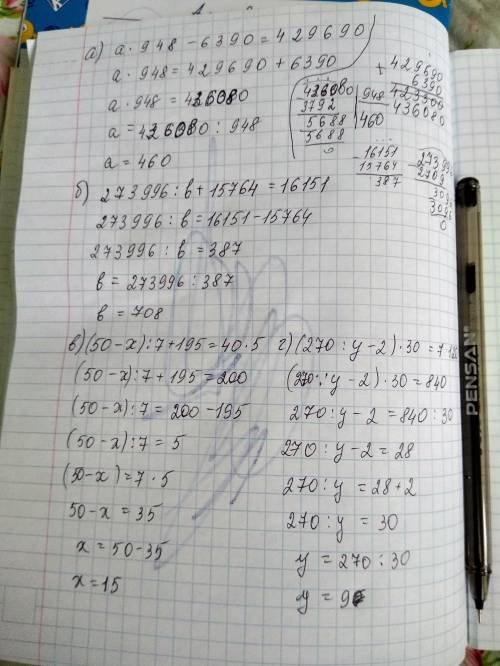 а) а · 948 - 6390 = 429690
а · 948 = 429690 + 6390
а · 948 = 436080
а = 436080 : 948
а = 460
+ 429690
6390
423309
436080
436080 948
3792 460
5688
5688
0
- 16151
15764
387
- 273996
2709
3096
3096
0
б) 273996 : в + 15764 = 16151
273996 : в = 16151 - 15764
273996 : в = 387
в = 273996 : 387
в = 708
в) (50 - х) : 7 + 195 = 40 · 5
(50 - х) : 7 + 195 = 200
(50 - х) : 7 = 200 - 195
(50 - х) : 7 = 5
(50 - х) = 7 · 5
50 - х = 35
х = 50 - 35
х = 15
г) (270 : у - 2) · 30 = 7 ·
(270 : у - 2) · 30 = 840
270 : у - 2 = 840 : 30
270 : у - 2 = 28
270 : у = 28 + 2
270 : у = 30
у = 270 : 30
у = 9
PENSAN